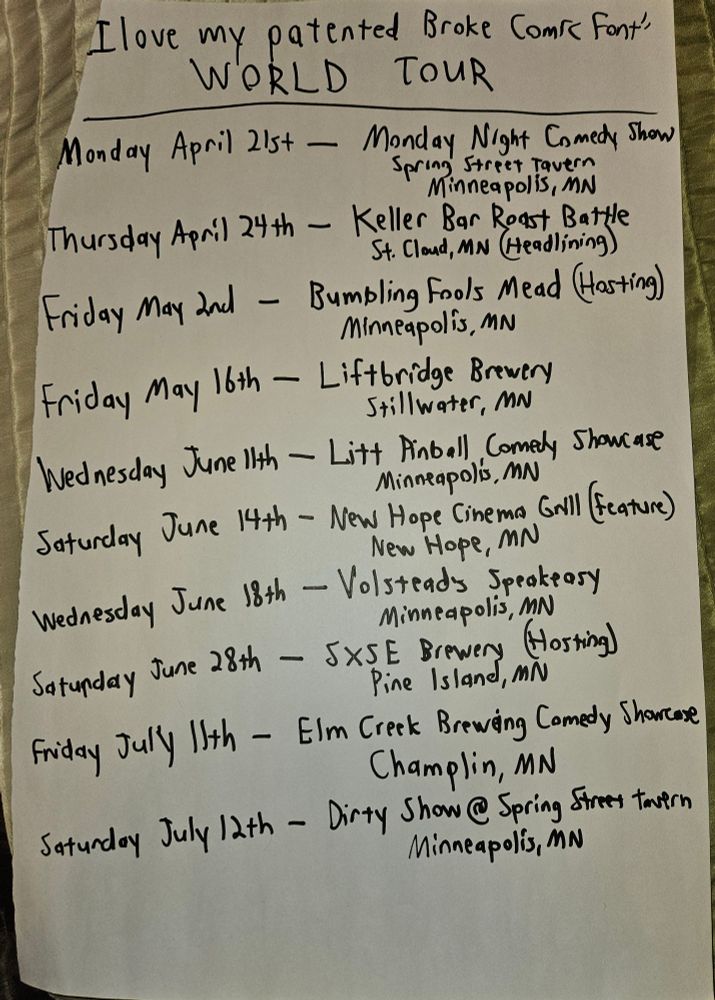 I love my patented Broke Comic Font"
WORLD TOUR
Monday April 21st — Monday Night Comedy Show
Spring Street Tavern
Minneapolis, MN
Thursday April 24th — Keller Bar Roast Battle
St. Cloud, MN (Headlining)
Friday May 2nd — Bumbling Fools Mead (Hosting)
Minneapolis, MN
Friday May 16th — Liftbridge Brewery
Stillwater, MN
Wednesday June 11th — Litt Pinball Comedy Showcase
Minneapolis, MN
Saturday June 14th — New Hope Cinema Grill (feature)
New Hope, MN
Wednesday June 18th — Volsteads Speakeasy
Minneapolis, MN
Saturday June 28th — SXSE Brewery (Hosting)
Pine Island, MN
Friday July 11th — Elm Creek Brewing Comedy Showcase
Champlin, MN
Saturday July 12th — Dirty Show @ Spring Street Tavern
Minneapolis, MN